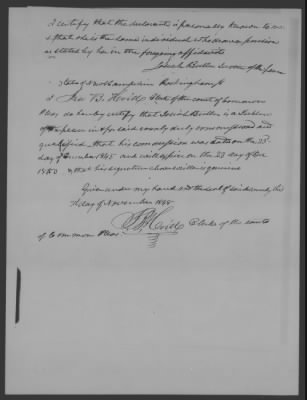 I certify that the declarant is personally known to me
& that she is the same individual who draws pension
as stated by her in the foregoing affidavit
Josiah Butler Justice of the Peace
State of New hampshire Rockingham ss
I B. Hoitt Clerk of the court of common
Pleas do hereby certify that Josiah Butler is a Justice
of the peace in aforesaid county duly commissioned and
qualified, that his commission was dated on the 23d
day of 1845 and will expire on the 23 day of
1850 & that his signature above written is genuine
Given under my hand and the seal of said county this
day of November 1848
Hoitt Clerk of the court
of Common Pleas